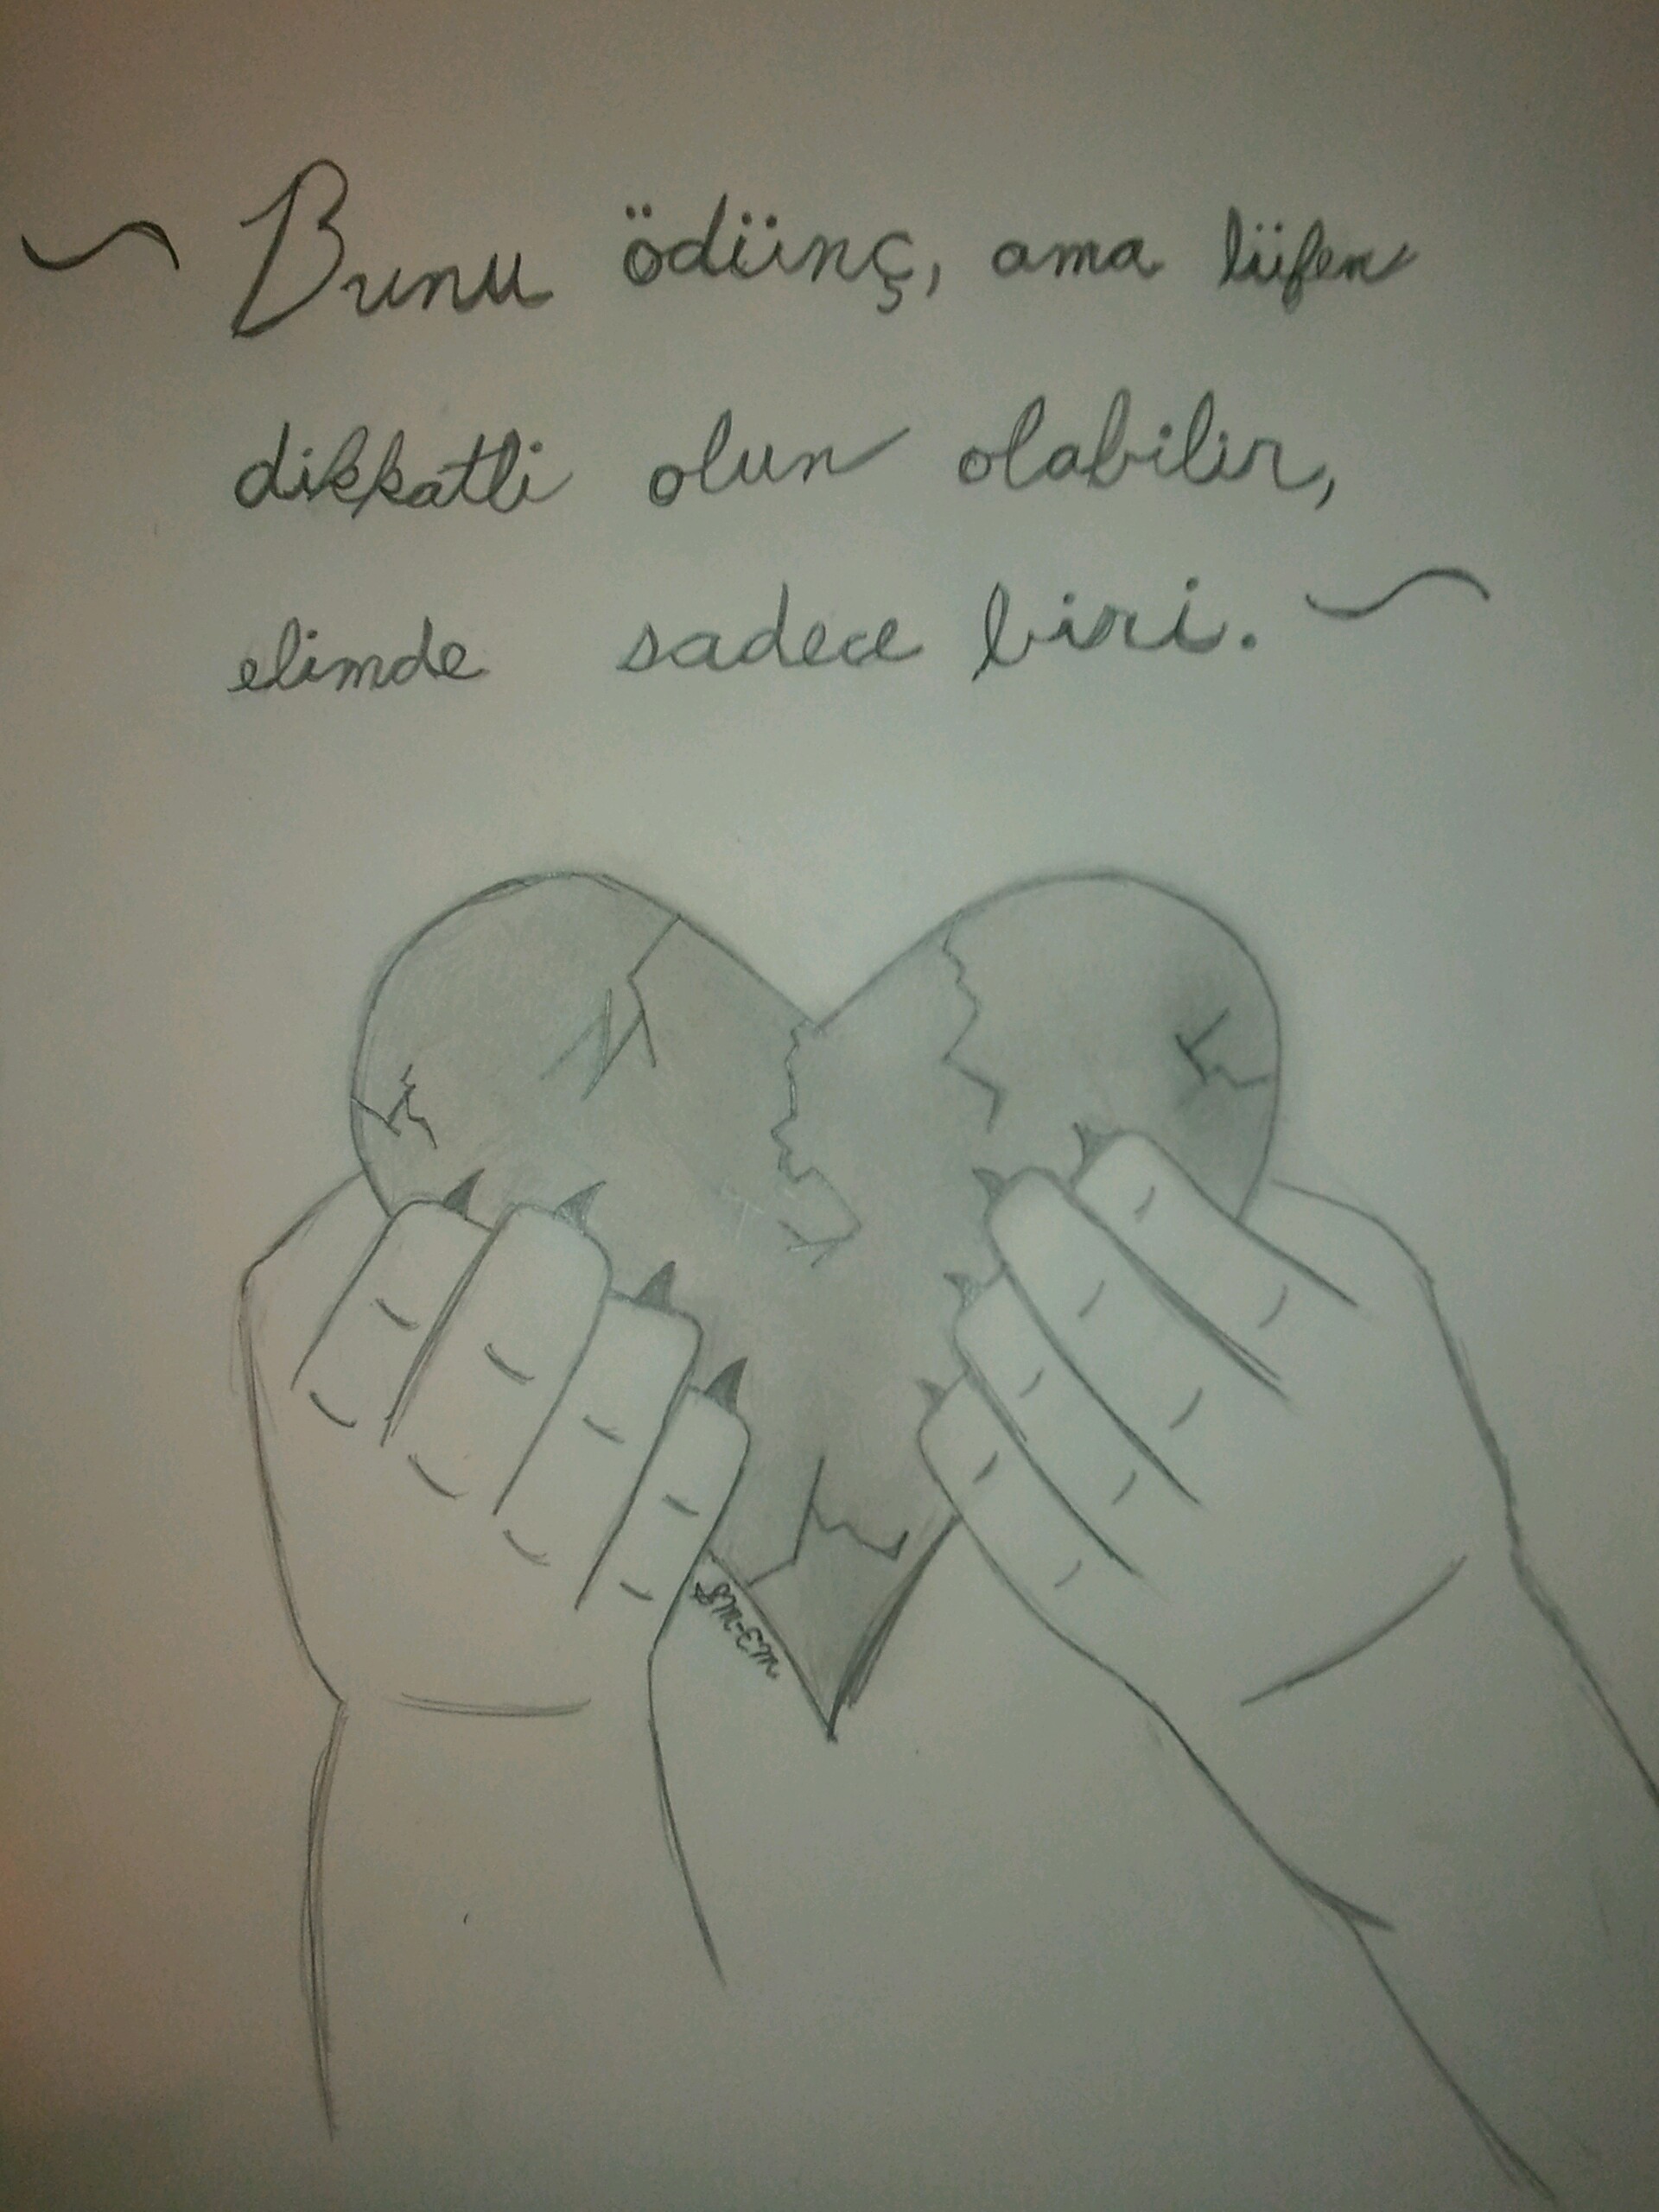 ~ Bunu ödünç, ama lüfen
dikkatli olun olabilir,
elimde sadece biri. ~
SM-EM